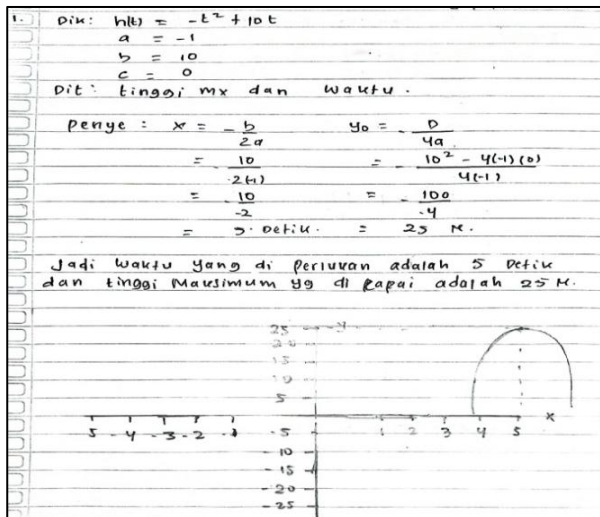 1. Dik: h(t) = -t² + 10t
a = -1
b = 10
c = 0
Dit: tinggi mx dan waktu.
Penye: x = -b/2a
= -10/2(-1)
= -10/-2
= 5. Detik.
yo = -D/4a
= -10² - 4(-1)(0)/4(-1)
= -100/-4
= 25 M.
Jadi waktu yang di perlukan adalah 5 Detik
dan tinggi Maksimum yg di capai adalah 25 M.
25 y
20
15
10
5
5 -4 -3 -2 -1 1 2 3 4 5 x
-5
-10
-15
-20
-25